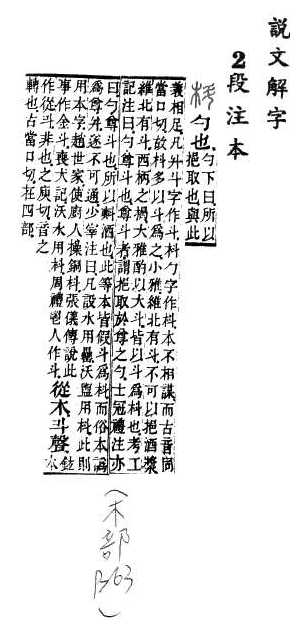 說文解字
2段注本
勺也
勺下曰所以
挹取也與此
義相足凡升斗字作斗枓勺字作枓本不相謀而古音同
當口切故枓多以斗爲之小雅維北有斗不可以挹酒漿
維北有斗西柄之揭大雅酌以大斗皆以斗爲枓也考工
記注曰勺尊斗也尊斗者謂挹取於尊之勺士冠禮注亦
曰勺尊斗也所以㪺酒也此等本皆假斗爲枓而俗本譌
爲尊升遂不可通少宰注曰凡設水用罍沃盥用枓此則
用本字趙世家使廚人操銅枓張儀傳說此
事作金斗喪大記沃水用枓周禮鬯人作斗
從木斗聲
鉉
本
作從斗非也之庾切音之
轉也古當口切在四部
(木部
)